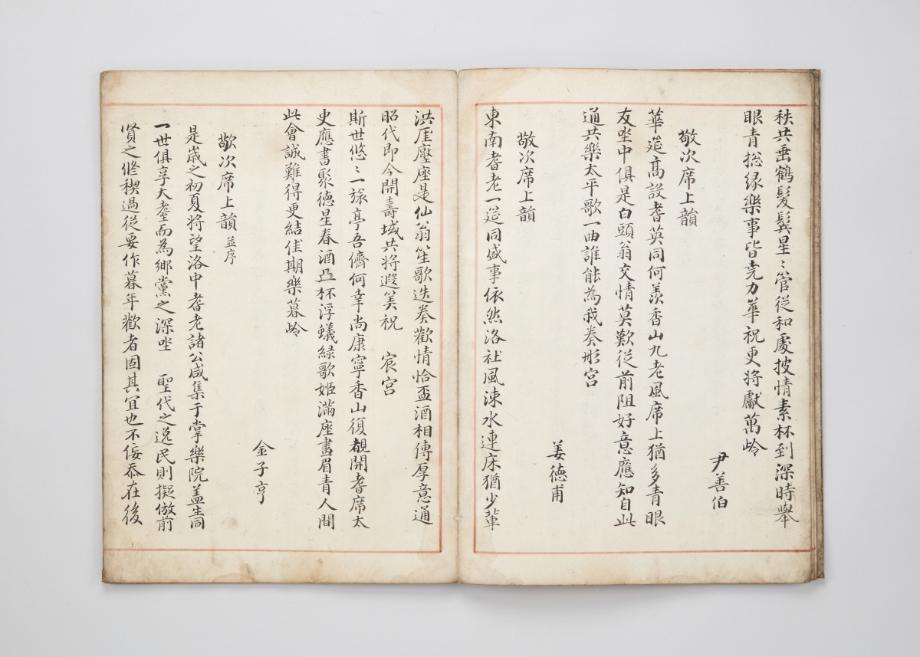 秩共垂鶴髮鬂星〻管從和處披情素杯到深時舉
眼青揔緣樂事皆堯力華祝更將獻萬岭
尹善伯
敬次席上韻
華筵高設耆英同何羡香山九老風席上猶多青眼
友坐中俱是白頭翁交情莫歎從前阻好意應知自此
通共樂太平歌一曲誰能為我奏形宮
姜德甫
敬次席上韻
東南耆老一筵同盛事依然洛社風涑水連床猶少輩
洪厓壓座是仙翁笙歌迭奏歡情恰盃酒相傳厚意通
昭代即今開壽域共將遐筭祝 宸宮
斯世悠〻一旅亭吾儕何幸尚康寧香山復覩開耆席太
史應書聚德星春酒亞杯浮蟻綠歌姬滿座畫眉青人間
此會誠難得更結佳期樂暮岭
金子亨
敬次席上韻 並序
是歲之初夏將望洛中耆老諸公咸集于掌樂院盖生同
一世俱享大耋而為鄉黨之深 聖代之逸民則擬倣前
賢之修稧過從要作暮年歡者固其宜也不侫忝在後